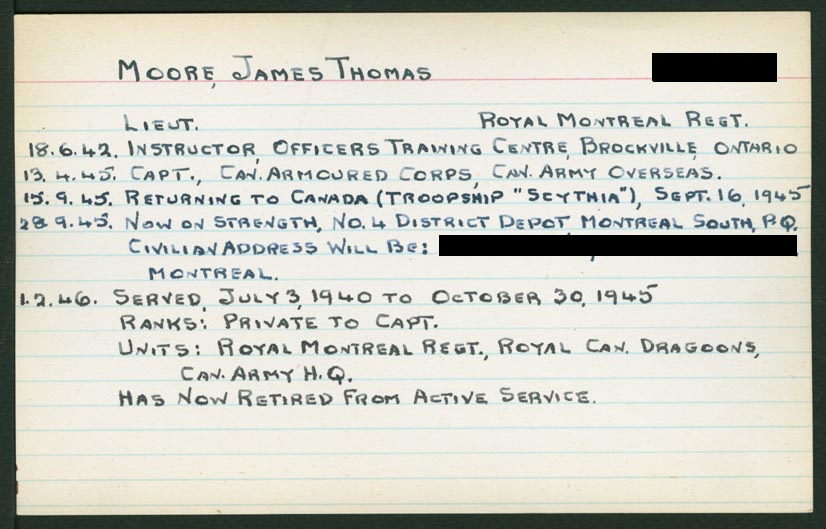 MOORE, JAMES THOMAS
LIEUT. ROYAL MONTREAL REGT.
18.6.42. INSTRUCTOR, OFFICERS TRAINING CENTRE, BROCKVILLE, ONTARIO
13.4.45. CAPT., CAN. ARMOURED CORPS, CAN. ARMY OVERSEAS.
15.9.45. RETURNING TO CANADA (TROOPSHIP "SCYTHIA"), SEPT. 16, 1945
28.9.45. NOW ON STRENGTH, NO. 4 DISTRICT DEPOT MONTREAL SOUTH, P.Q.
CIVILIAN ADDRESS WILL BE:
MONTREAL.
1.2.46. SERVED, JULY 3, 1940 TO OCTOBER 30, 1945
RANKS: PRIVATE TO CAPT.
UNITS: ROYAL MONTREAL REGT., ROYAL CAN. DRAGOONS,
CAN. ARMY H.Q.
HAS NOW RETIRED FROM ACTIVE SERVICE.